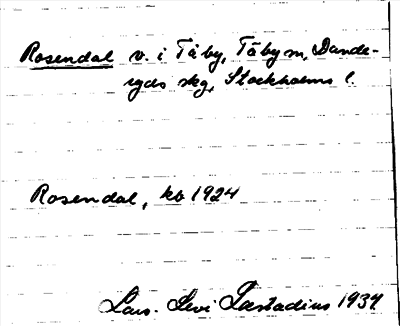 Rosendal v. i Täby, Täby sn, Dande-
ryds skg, Stockholms l.
Rosendal, kb 1924
Lars-Levi Læstadius 1934